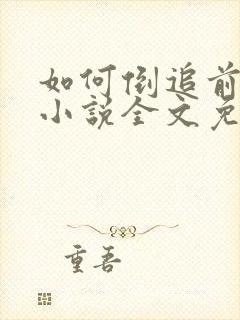 如何倒追前
小说全文免
重吾